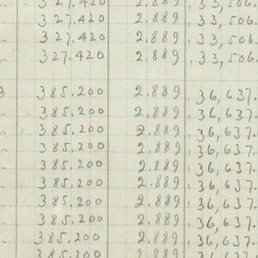 327.420 2.889 33,506.
327.420 2.889 33,506.
327.420 2.889 33,506.
327.420 2.889 33,506.
385.200 2.889 36,637.
385.200 2.889 36,637.
385.200 2.889 36,637.
385.200 2.889 36,637.
385.200 2.889 36,637.
385.200 2.889 36,637.
385.200 2.889 36,637.
385.200 2.889 36,637.
385.200 2.889 36,637.
385.200 2.889 36,637.